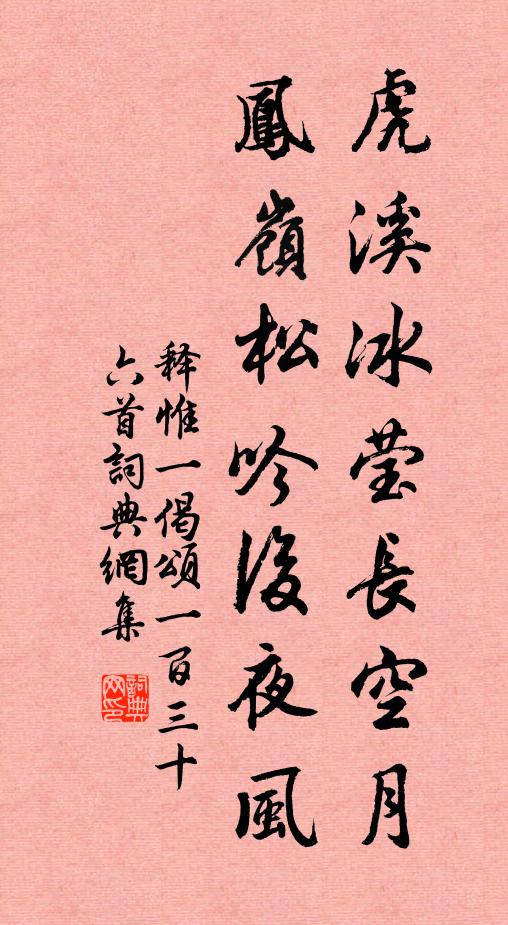 虎溪冰莹長空月
鳳嶺松吟後夜風
释惟一偈頌一百三十
六首詞典網集
詞典
网印